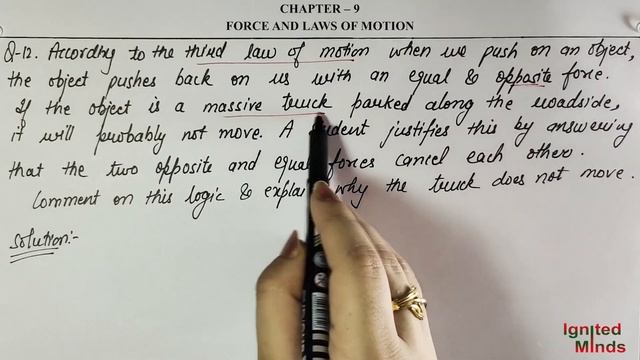 CHAPTER – 9
FORCE AND LAWS OF MOTION
Q-12. According to the third law of motion when we push on an object,
the object pushes back on us with an equal & opposite force.
If the object is a massive truck parked along the roadside,
it will probably not move. A student justifies this by answering
that the two opposite and equal forces cancel each other.
Comment on this logic & explain why the truck does not move.
Solution:-
Ignited
Minds